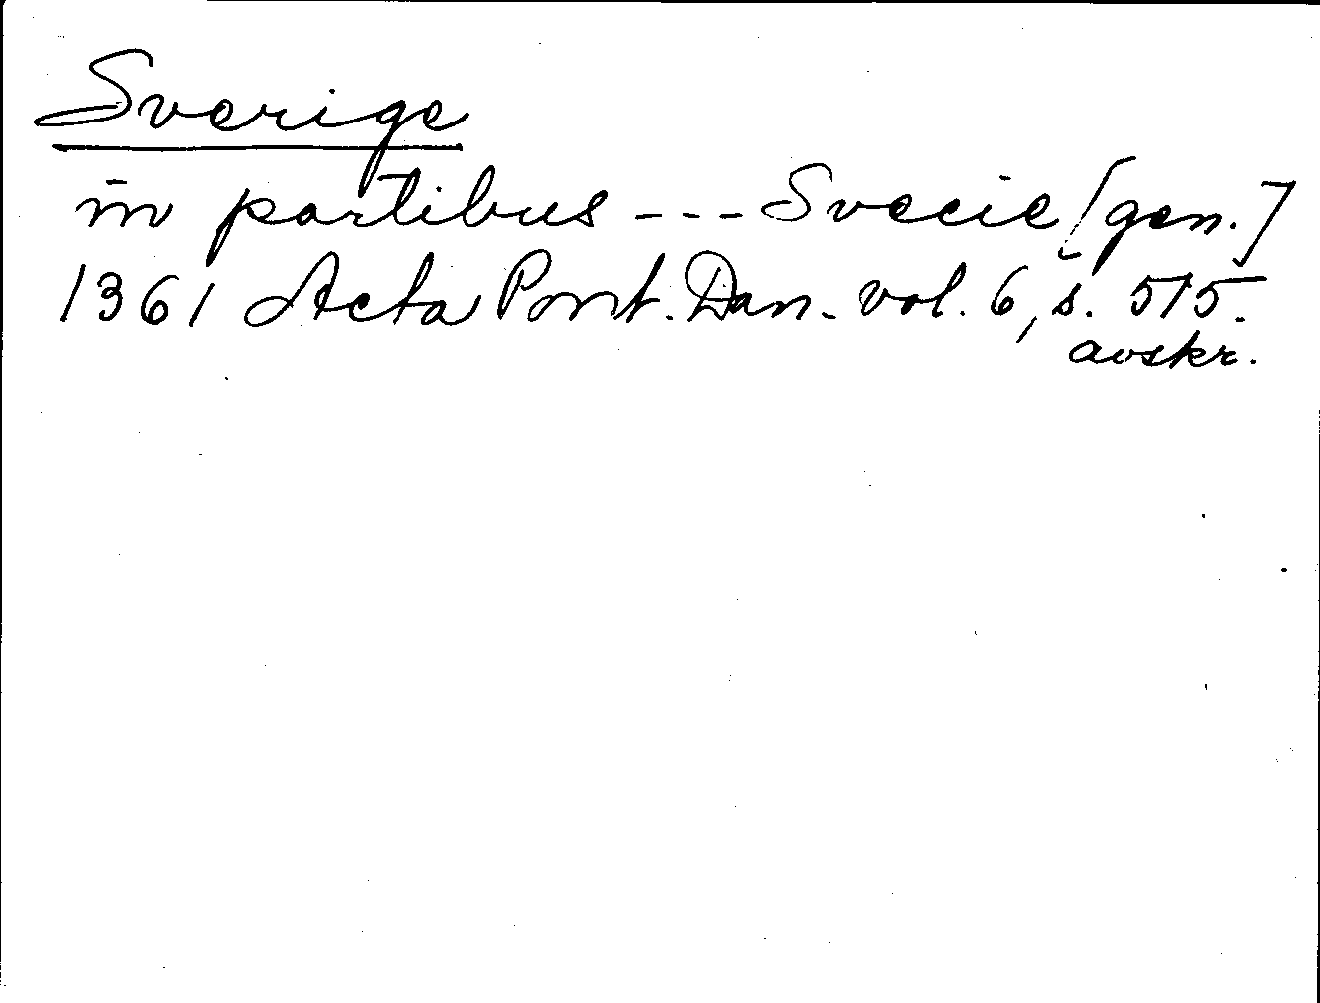 Sverige
in partibus --- Svecie [gen.]
1361 Acta Pont. Dan. vol. 6, s. 515.
avskr.